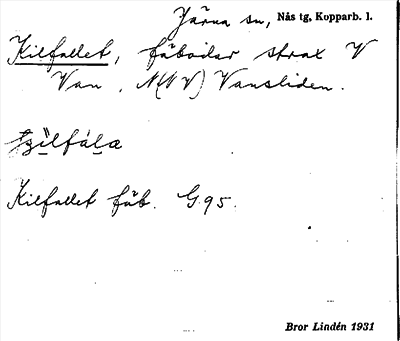 Järna sn, Nås tg, Kopparb. l.
Kilfallet, fäbodar strax V
Van, N(NV) Vansliden.
Kilfallet fäb. G.95.
Bror Lindén 1931